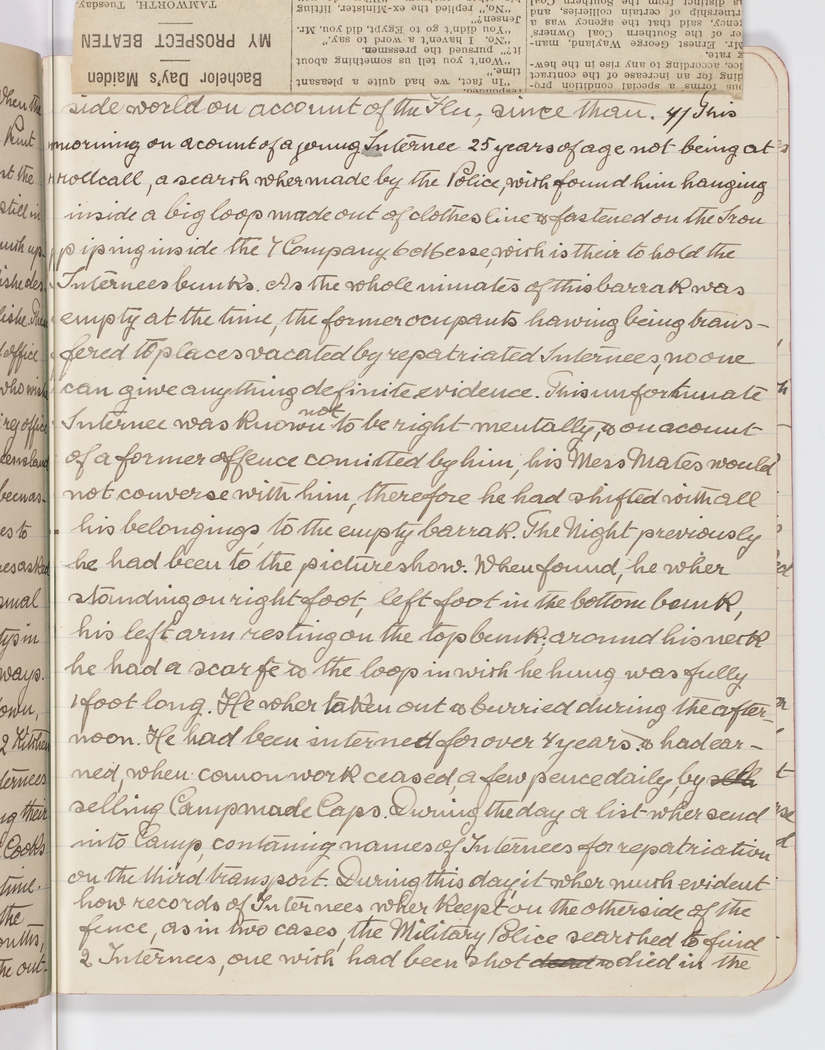 forms a special condition pro-
ding for an increase of the contract
ice, according to any rise in the hew-
g rate.
Mr. Ernest George Wayland, man-
er of the Southern Coal Owners'
gency, said that the agency was a
rtnership of certain collieries, and
s distinct from the Southern Coal
responded.
"In fact, we had quite a pleasant
time."
"Won't you tell us something about
it?" pursued the pressmen.
"No. I haven't a word to say."
"You didn't go to Egypt, did you, Mr.
Jensen?"
"No," replied the ex-Minister, lifting
Bachelor Day's Maiden
MY PROSPECT BEATEN
TAMWORTH, Tuesday.
side world on account of the Flu, since than. 4/ This
morning on acount of a joung Internee 25 years of age not being at
rollcall, a search wher made by the Police, wich found him hanging
inside a big loop made out of clothes line & fastened on the Iron
piping inside the 7 Company 6 Messe, wich is their to hold the
Internees bunk's. As the whole inmates of this barrak was
empty at the time, the former ocupants hawing being trans-
fered to places vacated by repatriated Internees, no one
can give anything definite evidence. This unfortunate
Internee was known not to be right mentally, & on acount
of a former offence comitted by him, his Mess Mates would
not converse with him, therefore he had shifted with all
his belongings, to the empty barrak. The Night previously
he had been to the pictureshow. When found, he wher
standing on right foot, left foot in the bottom bunk,
his left arm resting on the top bunk; around his neck
he had a scarfe & the loop in wich he hung was fully
1 foot long. He wher taken out & burried during the after-
noon. He had been interned for over 4 years. & had ear-
ned, when comon work ceased, a few pence daily, by selli
selling Camp made Caps. During the day a list wher send
into Camp, containg names of Internees for repatriation
on the third transport. During this day, it wher much evident
how records of Internees wher keept on the otherside of the
fence, as in two cases, the Military Police searched to find
2 Internees, one wich had been shot dead & died in the